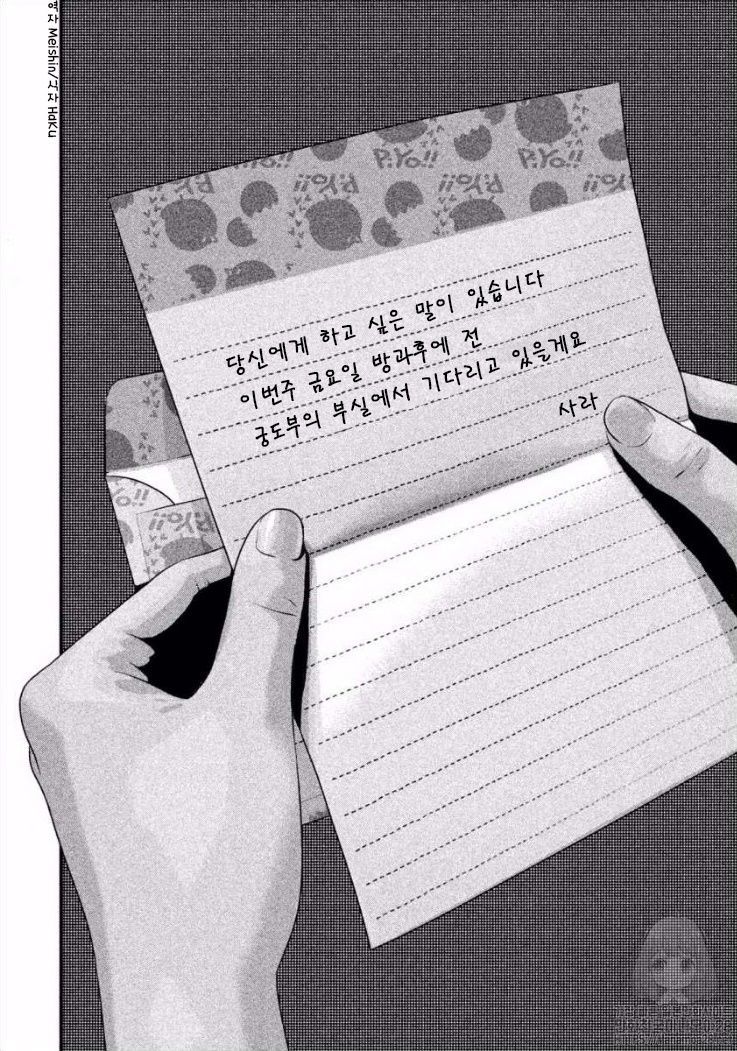 역자 Meishin/식자 HaKu
P.Yo!!
P.Yo!!
P.Yo!!
P.Yo!!
당신에게 하고 싶은 말이 있습니다
이번주 금요일 방과후에 전
궁도부의 부실에서 기다리고 있을게요
사라
P.Yo!!